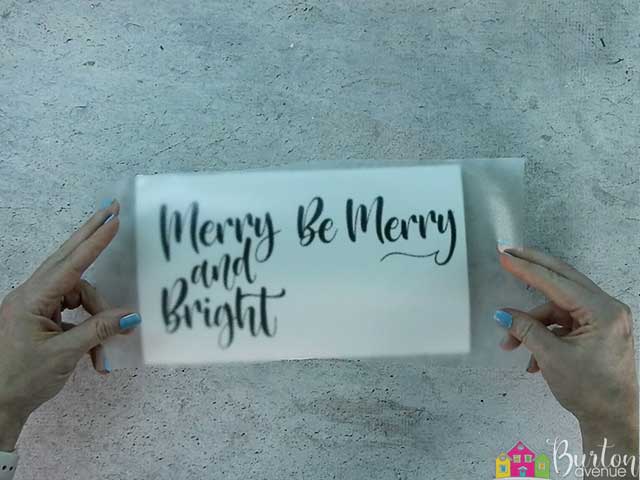 Merry
and
Bright
Be Merry
Burton
avenue